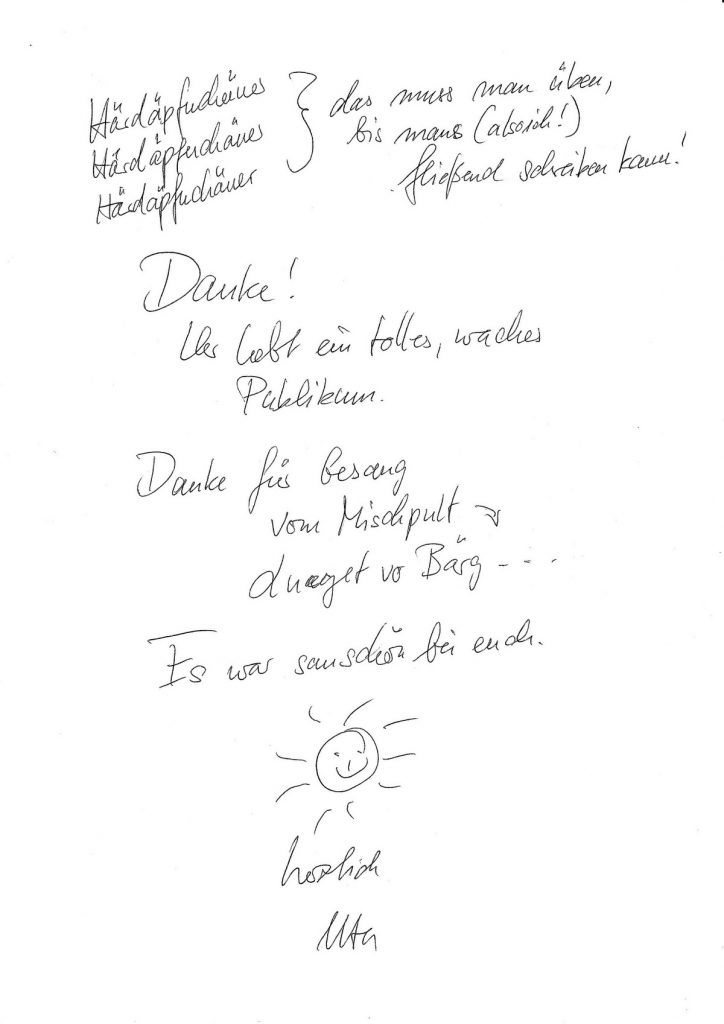 Härdäpfuchäuer
Härdäpfuchäuer
Härdäpfuchäuer
das muss man üben,
bis mans (also ich!)
fließend schreiben kann!
Danke!
Ihr habt ein tolles, waches
Publikum.
Danke fürs Gesang
vom Mischpult
vo Bärg - - -
Es war sauschön bei euch.
herzlich
Uta